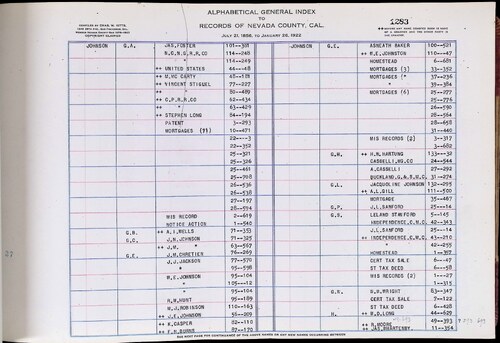 COMPILED BY CHAS. W. KITTS
ALPHABETICAL GENERAL INDEX
TO
RECORDS OF NEVADA COUNTY, CAL.
JULY 21, 1856, TO JANUARY 26, 1922
1283
JOHNSON G.A. JAS. FOSTER 101--301
N.C.N.G.R.R.CO 114--248
" 114--249
++ UNITED STATES 44---48
++ M.MC CARTY 48--189
++ VINCENT STIGUEL 77--327
++ " 80--489
++ C.P.R.R.CO 62--434
++ " 63--429
++ STEPHEN LONG 84--194
PATENT 3--293
MORTGAGES (71) 10--471
22----3
22--352
25--321
25--326
25--461
25--708
26--536
26--538
27--197
28--594
MIS RECORD 2--619
NOTICE ACTION 1--542
G.B. ++ A.I.WELLS 71--353
G.C. J.N.JOHNSON 71--325
++ J.M. " 63--597
G.E. J.M.CHRETIEN 76--269
J.J.JACKSON 77--570
" 95--598
R.E.JOHNSON 95--104
" 105--12
" 95--104
R.M.HUNT 95--189
M.J.ROBINSON 110--163
++ J.E.JOHNSON 56--209
++ K.CASPER 82--118
++ F.H.BURNS 87--170
JOHNSON G.E. ASNEATH BAKER 100--521
++ R.E.JOHNSTON 110--47
HOMESTEAD 6--681
MORTGAGES (3) 33--352
MORTGAGES (" 37--236
" 39--384
MORTGAGES (6) 25--277
25--776
26--590
28--564
28--658
31--440
MIS RECORDS (2) 3--317
3--682
G.H. ++ H.H.HARTUNG 133---32
CASSELLI,MG.CO 24--544
A.CASSELLI 27--292
BUCKLAND,G.& S.M.C. 31--274
G.L. JACQUOLINE JOHNSON 132--295
++ A.L.GILL 111--500
MORTGAGE 35--467
G.P. J.L.SANFORD 25---14
G.S. LELAND STANFORD 5--145
INDEPENDENCE,C.M.C 42--343
J.L.SANFORD 25---14
++ INDEPENDENCE,C.M.C 43--318
++ " 42--255
HOMESTEAD 1--307
CERT TAX SALE 6---47
ST TAX DEED 6---58
MIS RECORDS (2) 1---27
1--315
G.W. G.W.WRIGHT 83--347
CERT TAX SALE 7--122
ST TAX DEED 6--428
H. ++ H.D.LONG 44--629
++ R.MOORE 49--393
++ JAS.WHARTENBY 11--354